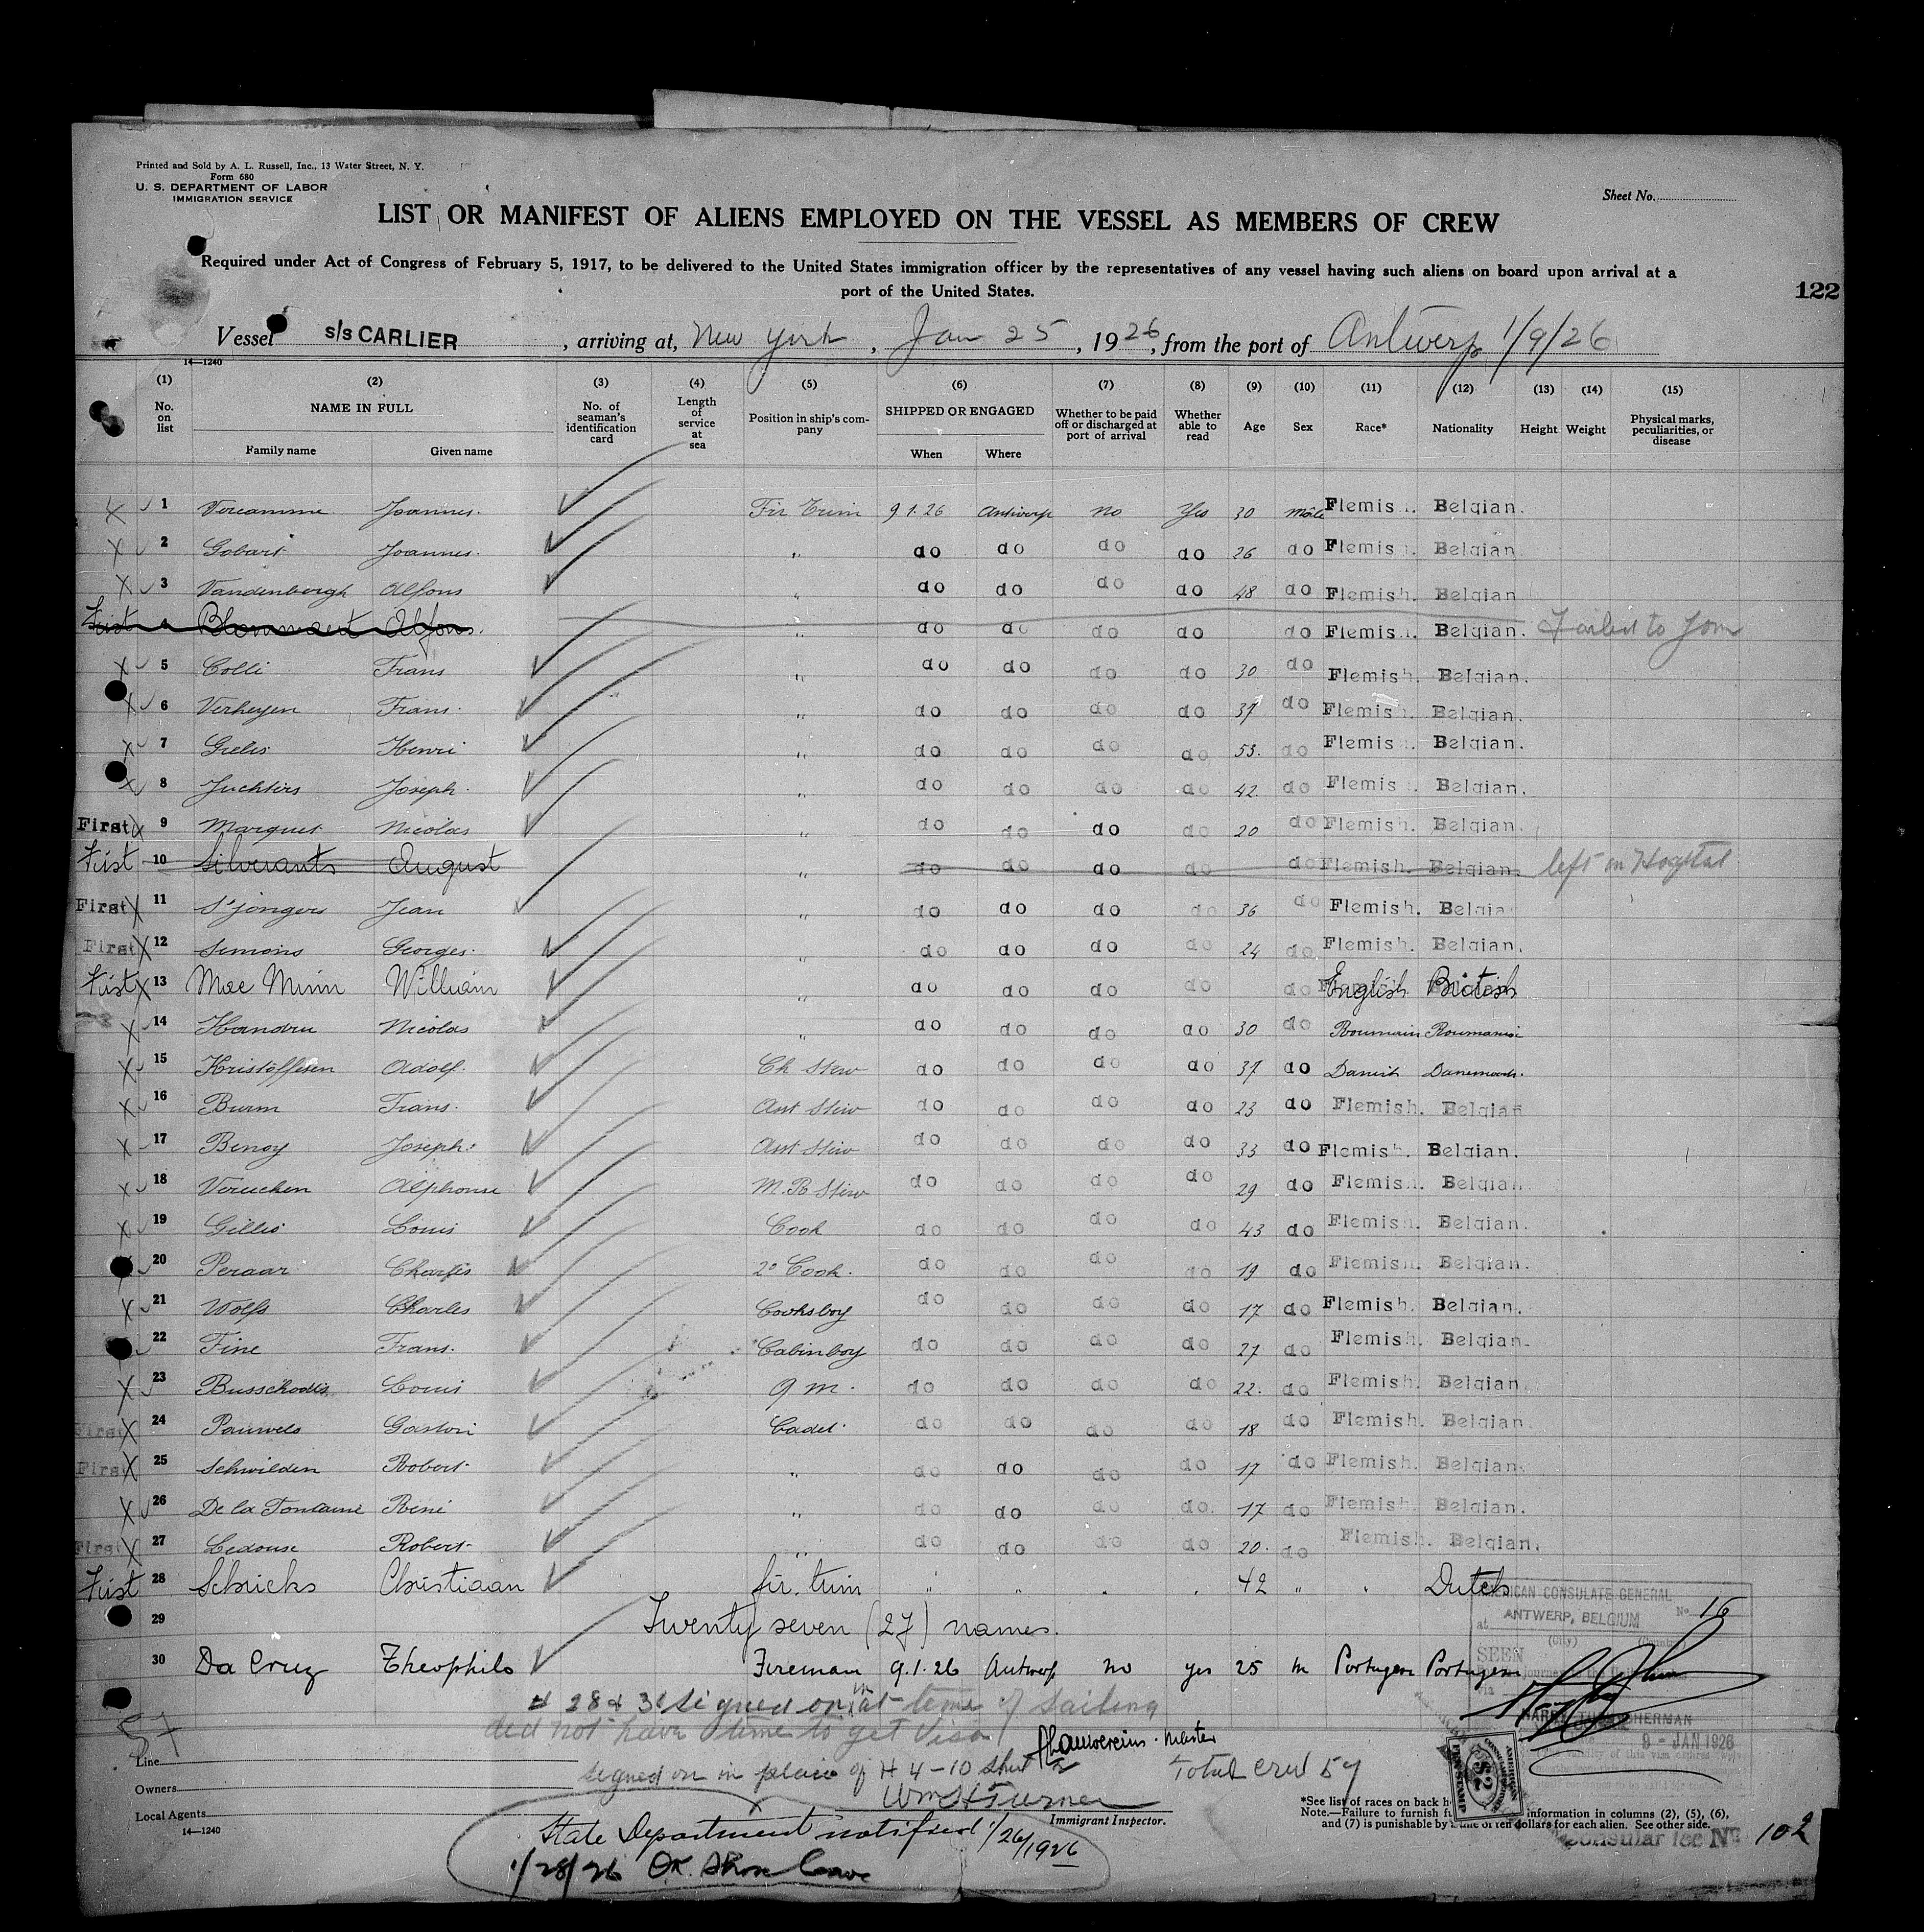 Printed and Sold by A. L. Russell, Inc., 13 Water Street, N. Y.
Form 680
U. S. DEPARTMENT OF LABOR
IMMIGRATION SERVICE
Sheet No.
LIST OR MANIFEST OF ALIENS EMPLOYED ON THE VESSEL AS MEMBERS OF CREW
Required under Act of Congress of February 5, 1917, to be delivered to the United States immigration officer by the representatives of any vessel having such aliens on board upon arrival at a
port of the United States.
122
Vessel s/s CARLIER, arriving at, New York, Jan 25, 1926, from the port of Antwerp 1/9/26
14—1240
(1) (2) (3) (4) (5) (6) (7) (8) (9) (10) (11) (12) (13) (14) (15)
No. on list NAME IN FULL Family name Given name No. of seaman's identification card Length of service at sea Position in ship's company SHIPPED OR ENGAGED When Where Whether to be paid off or discharged at port of arrival Whether able to read Age Sex Race* Nationality Height Weight Physical marks, peculiarities, or disease
1 Vercamme Joannes. Fir Trim 9.1.26 Antwerp no Yes 30 Male Flemish. Belgian.
2 Gobart Joannes. " do do do do 26 do Flemish. Belgian
3 Vandenbergh Alfons " do do do do 48 do Flemish. Belgian
First Blommaert Alfons. " do do do do do Flemish. Belgian. Failed to Join
5 Colli Frans " do do do do 30 do Flemish. Belgian.
6 Verheyen Frans. " do do do do 37 do Flemish. Belgian.
7 Grelis Henri " do do do do 53. do Flemish. Belgian.
8 Juchters Joseph. " do do do do 42. do Flemish. Belgian.
First 9 Marquet Nicolas " do do do do 20 do Flemish. Belgian.
First 10 Silverants August " do do do do do Flemish. Belgian. left in Hospital
First 11 S'jongers Jean " do do do do 36 do Flemish. Belgian
First 12 Simons Georges. " do do do do 24 do Flemish. Belgian.
First 13 Mac Minn William " do do do do do English British
14 Nicolas " do do do do 30 do Roumain Roumania
15 Kristoffersen Adolf. Ch Stew do do do do 37 do Danish
16 Burm Frans. Ast Stew do do do do 23 do Flemish. Belgian
17 Benoy Joseph. Ast Stew do do do do 33 do Flemish. Belgian.
18 Alphonse M.R Stew do do do do 29 do Flemish. Belgian.
19 Gillis Louis Cook do do do do 43 do Flemish. Belgian.
20 Peraar Charles 2º Cook. do do do do 19 do Flemish. Belgian.
21 Wolfs Charles Cooksboy do do do do 17 do Flemish. Belgian.
22 Fine Frans. Cabinboy do do do do 27 do Flemish. Belgian.
23 Louis Q m. do do do do 22. do Flemish. Belgian.
First 24 Pauwels Gaston Cadet. do do do do 18 do Flemish. Belgian.
First 25 Schwilden Robert " do do do do 17 do Flemish. Belgian.
26 De la Fontaine René " do do do do. 17 do Flemish. Belgian.
First 27 Ledouse Robert " do do do do 20. do Flemish. Belgian.
First 28 Schricks Christiaan fir. trim " " " " 42 " " Dutch
29 Twenty seven (27) names.
30 Da Cruz Theophilo Fireman 9.1.26 Antwerp no yes 25 m Portugese Portugese
AMERICAN CONSULATE GENERAL
at ANTWERP, BELGIUM No 16
(City)
SEEN
# 28 & 30 signed on at time of sailing
did not have time to get Visa
Master
signed on in place of # 4-10 sheet 2
Total crew 57
57
9 - JAN 1926
AMERICAN CONSULAR SERVICE $2 FEE STAMP
Line
Owners
Local Agents
14—1240
Wm H Turner
Immigrant Inspector.
*See list of races on back
Note.—Failure to furnish information in columns (2), (5), (6),
and (7) is punishable by a fine of ten dollars for each alien. See other side.
Consular fee No 102
State Department notified 1/26/1926
1/28/26 OK. Shore Leave